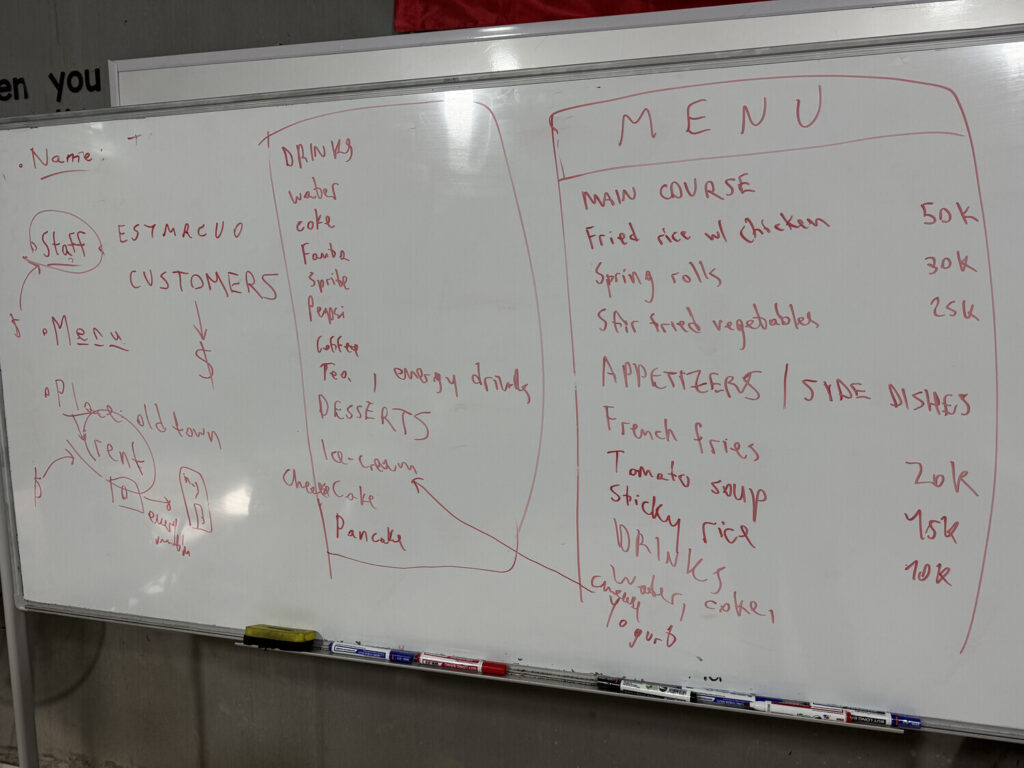 en you
Name:
Staff
ESTMRCUO
CUSTOMERS
$
Menu
Place: old town
rent
every
DRINKS
water
coke
Fanta
Sprite
Pepsi
Coffee
Tea, energy drinks
DESSERTS
Ice-cream
Cheese Cake
Pancake
MENU
MAIN COURSE
Fried rice w/ chicken 50K
Spring rolls 30K
Stir fried vegetables 25K
APPETIZERS / SIDE DISHES
French fries 20K
Tomato soup 15K
Sticky rice 10K
DRINKS
Water, coke,
Yogurt